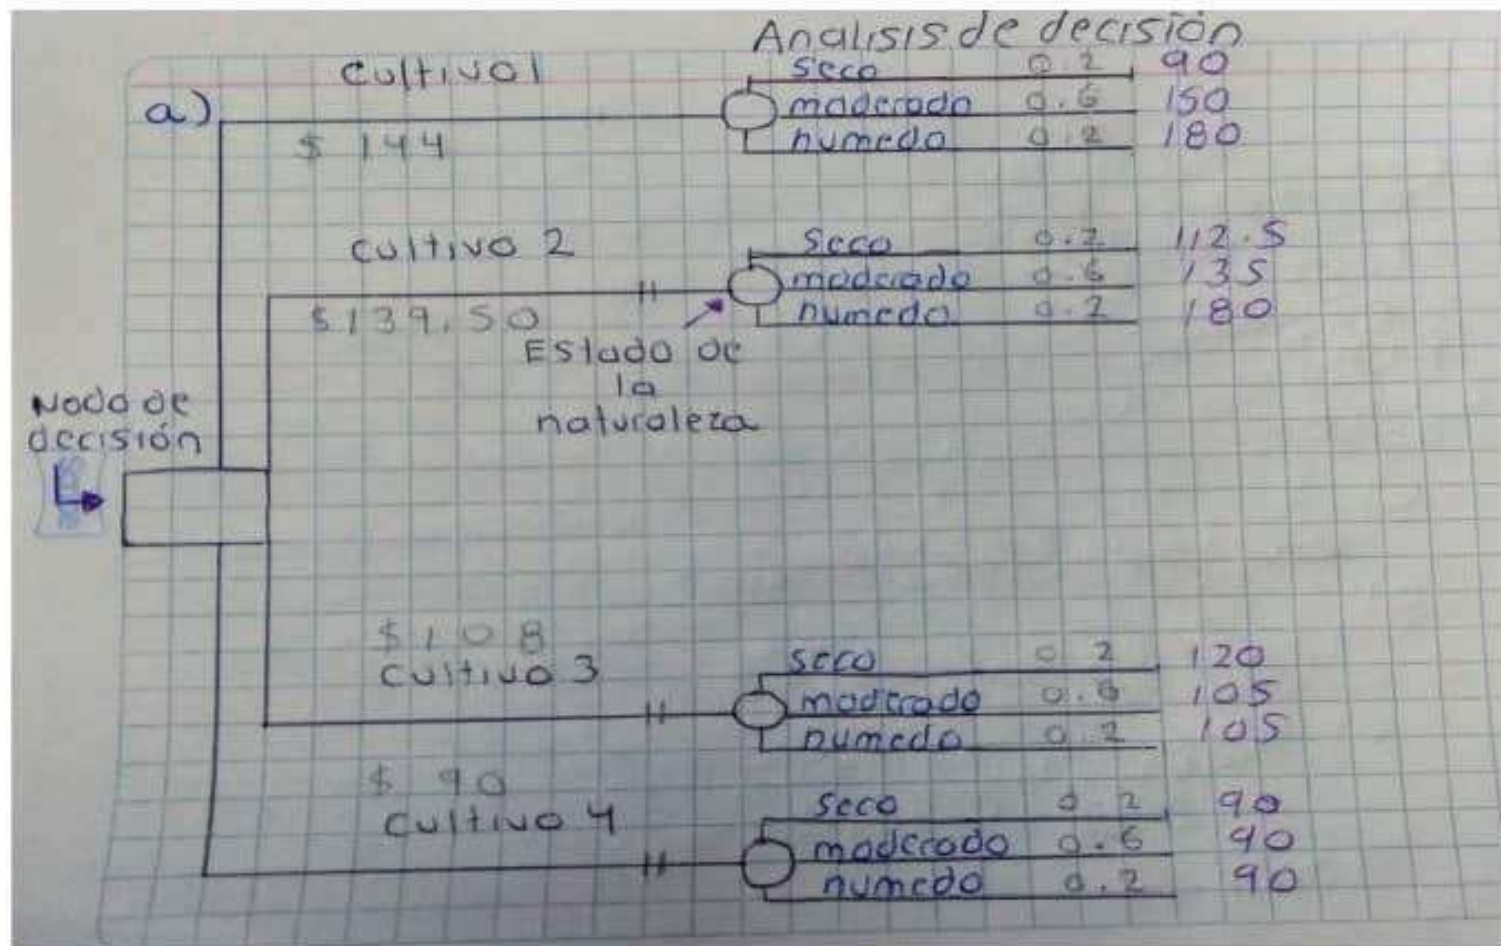 Analisis de decisión
a)
Cultivo 1
$ 144
seco 0.2 90
moderado 0.6 150
humedo 0.2 180
cultivo 2
$139.50
seco 0.2 112.5
moderado 0.6 135
humedo 0.2 180
Estado de
la
naturaleza
Nodo de
decisión
$108
cultivo 3
seco 0.2 120
moderado 0.6 105
humedo 0.2 105
$ 90
cultivo 4
seco 0.2 90
moderado 0.6 90
humedo 0.2 90